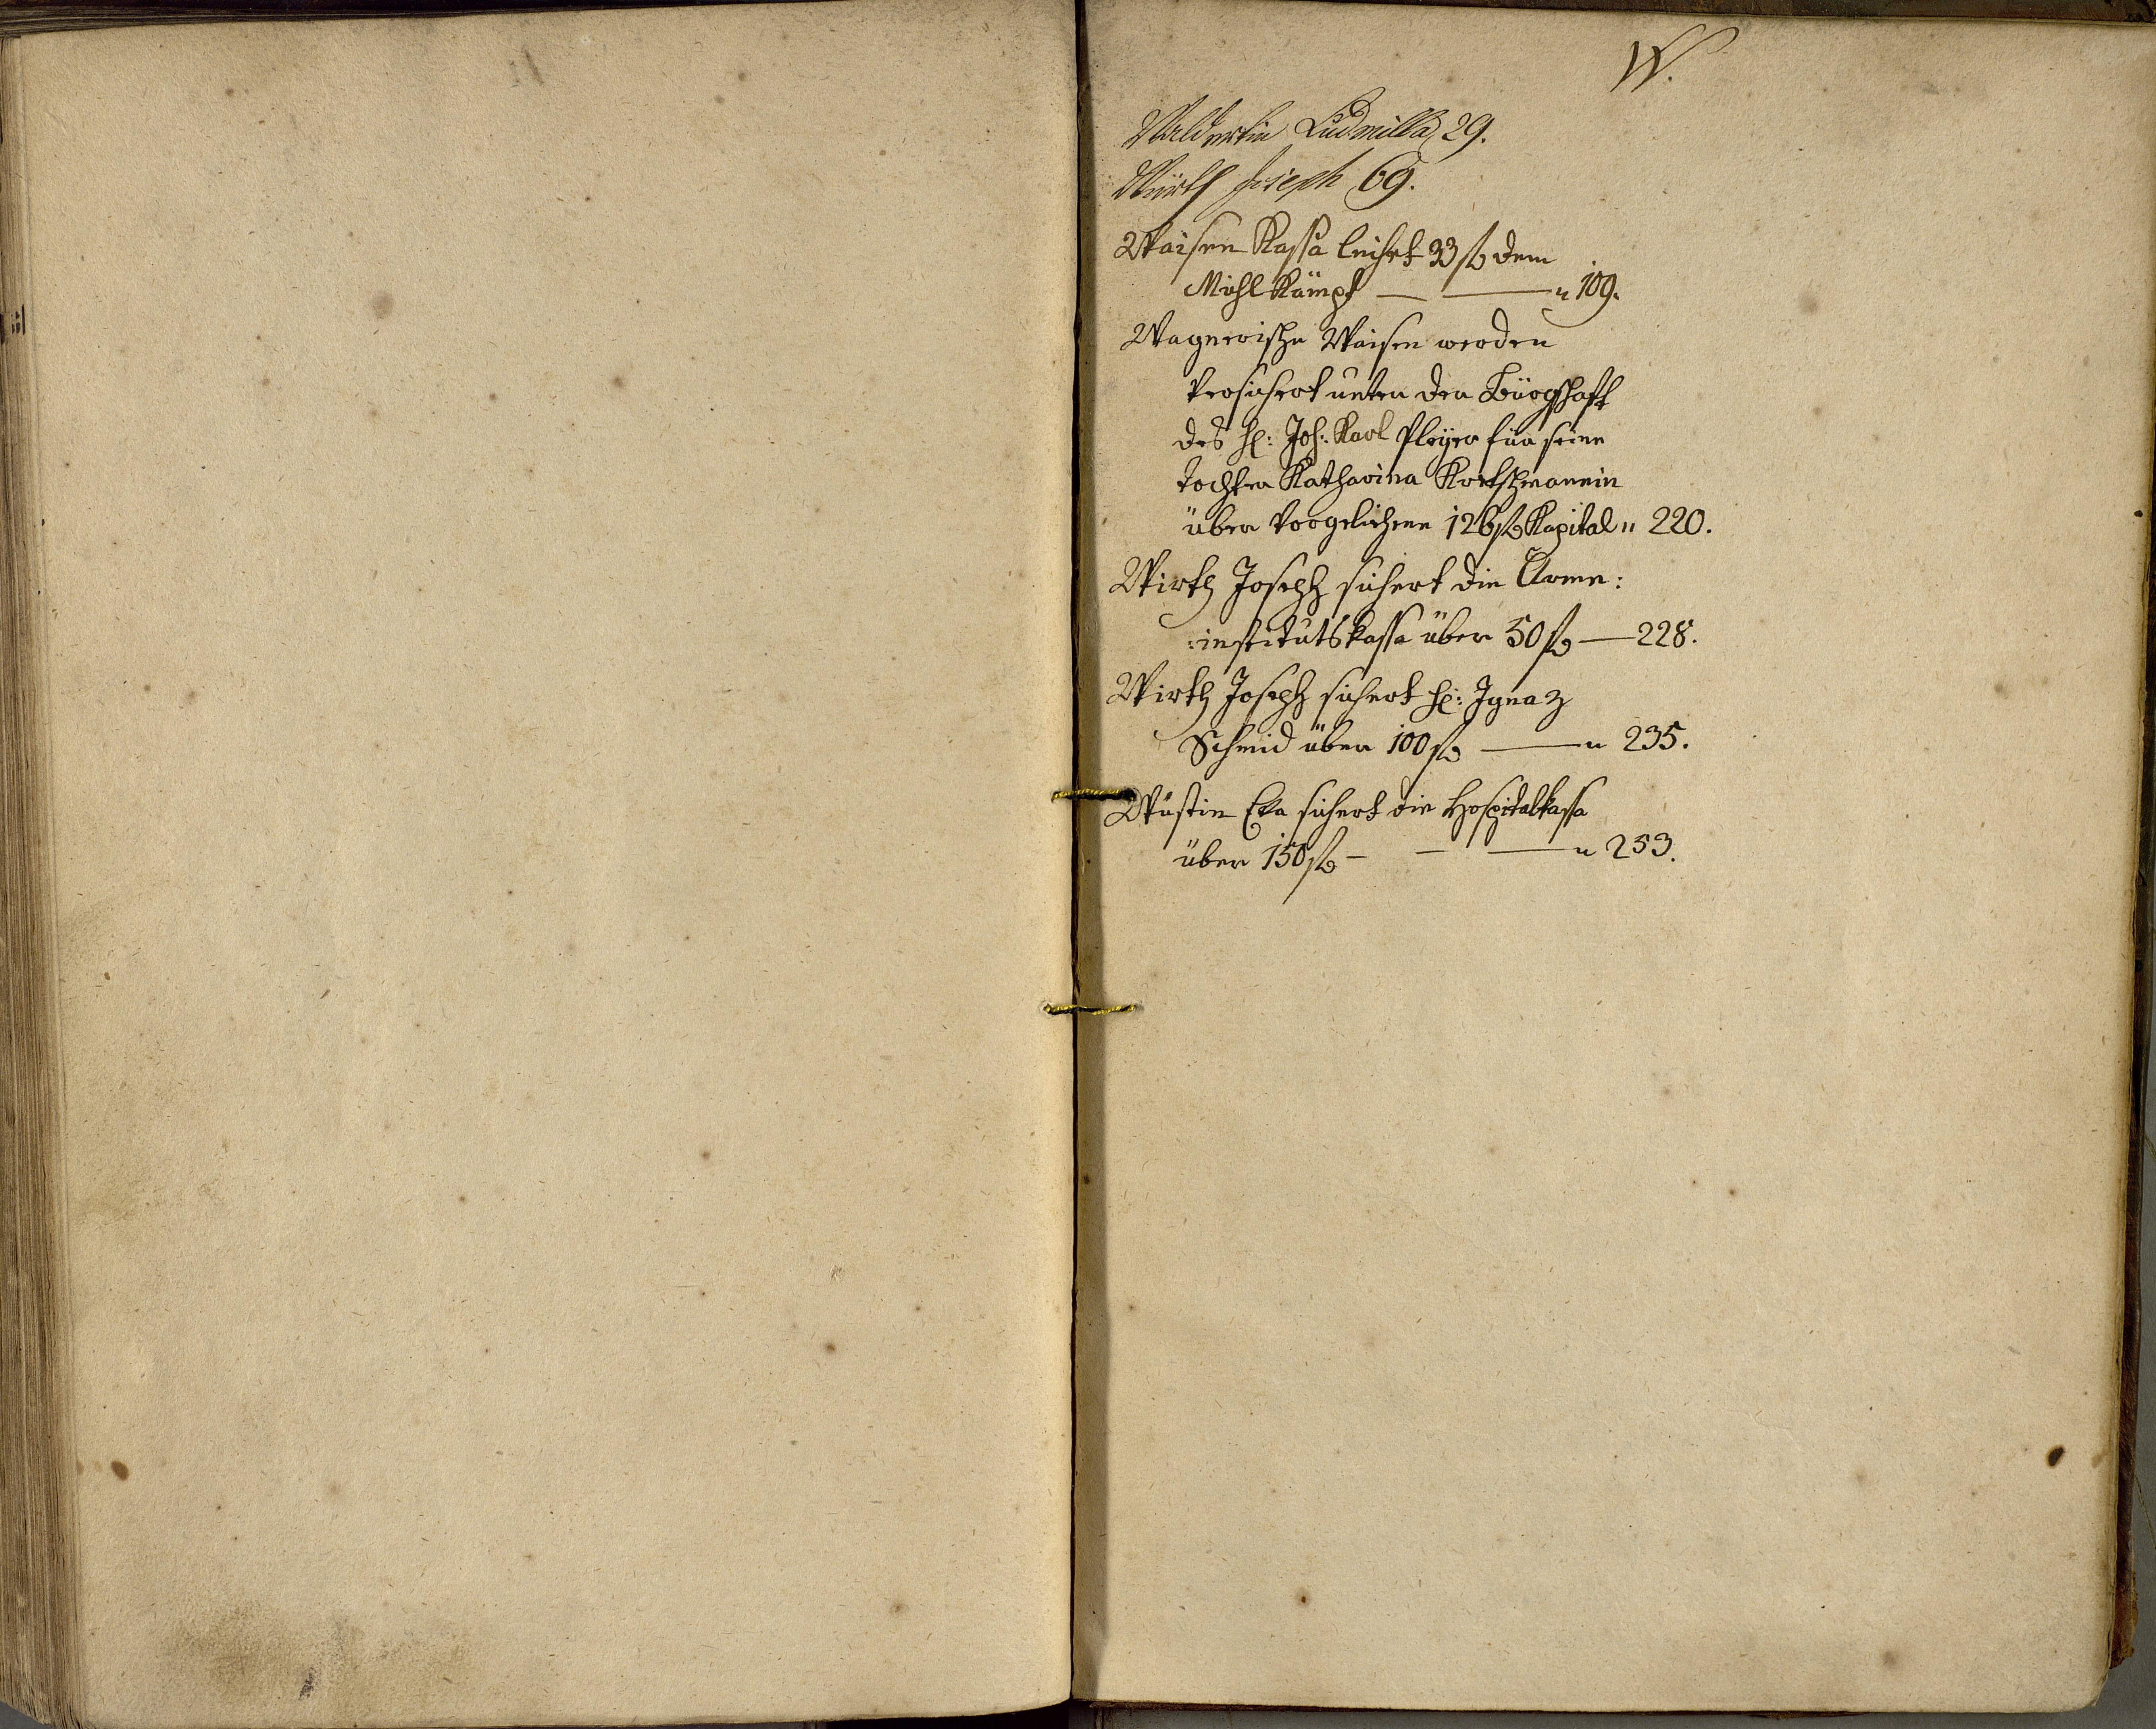 W.
Waldertin Ludmilla 29.
Würth Joseph 69.
Waisen Kassa leihet 33 fl dem
Michl Kämpf — — " 109.
Wagnerische Waisen werden
versichert unter der Bürgschaft
des H: Joh: Karl Pleyer für seine
Tochter Katharina Kretschmannin
über vorgeliehene 126 fl Kapital " 220.
Wirth Joseph sichert die Armen:
:institutskassa über 50 fl — 228.
Wirth Joseph sichert H: Ignaz
Schmid über 100 fl — " 235.
Wüstin Eva sichert die Hospitalkassa
über 150 fl — — — " 253.